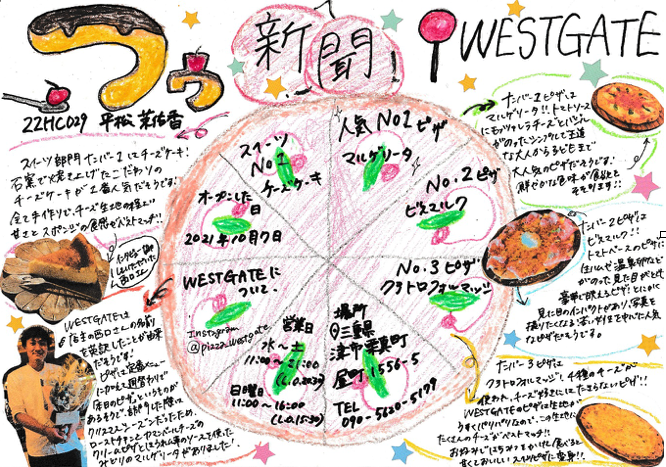 つぅ
新聞!
WESTGATE
22HC029 平松 菜佑香
スイーツ部門ナンバー1はチーズケーキ!
石窯で焼き上げたこだわりの
チーズケーキが1番人気だそうです!
全て手作りで、チーズ生地の程よい
甘さとスポンジの食感がベストマッチ!!
WESTGATEは
店主の西口さんの名前
を英訳したことが由来
だそうです!
ピザは定番メニュー
に加えて週替わりで
クリスマスシーズンだったため、
ローストチキンとカマンベールチーズの
クリームピザとほうれん草のソースを使った
みどりのマルゲリータがありました!
スイーツ
No.1
チーズケーキ
人気No1ピザ
マルゲリータ
No.2ピザ
ビスマルク
No.3ピザ
クワトロフォルマッジ
オープンした
日
2021年10月7日
WESTGATEに
ついて.
Instagram
@pizza_westgate
営業日
水〜土
11:00〜21:00
(L.O.20:30)
日曜日
11:00〜16:00
(L.O.15:30)
場所
三重県
津市栗真町
屋町1556-5
TEL
090-5620-5179
ナンバー1ピザは
マルゲリータ!!トマトソース
にモッツァレラチーズとバジル
がのったシンプルで王道
な大人から子どもまで
大人気のピザだそうです!
鮮やかな色味が食欲を
そそります!!
ナンバー2ピザは
ビスマルク!!
トマトベースのピザに
生ハムや温泉卵など
がのった見た目がとても
豪華で映えるピザ!とにかく
見た目のインパクトがあり、写真を
撮りたくなる!若い女性を中心に人気
なピザだそうです。
ナンバー3ピザは
クワトロフォルマッジ!4種のチーズが
使われ、チーズ好きにはたまらないピザ!!
WESTGATEのピザは生地が
うすくパリパリなので、この生地に
たくさんのチーズがベストマッチ!!
お好みではちみつをかけて食べると
甘くておいしいスイーツピザに変身!!